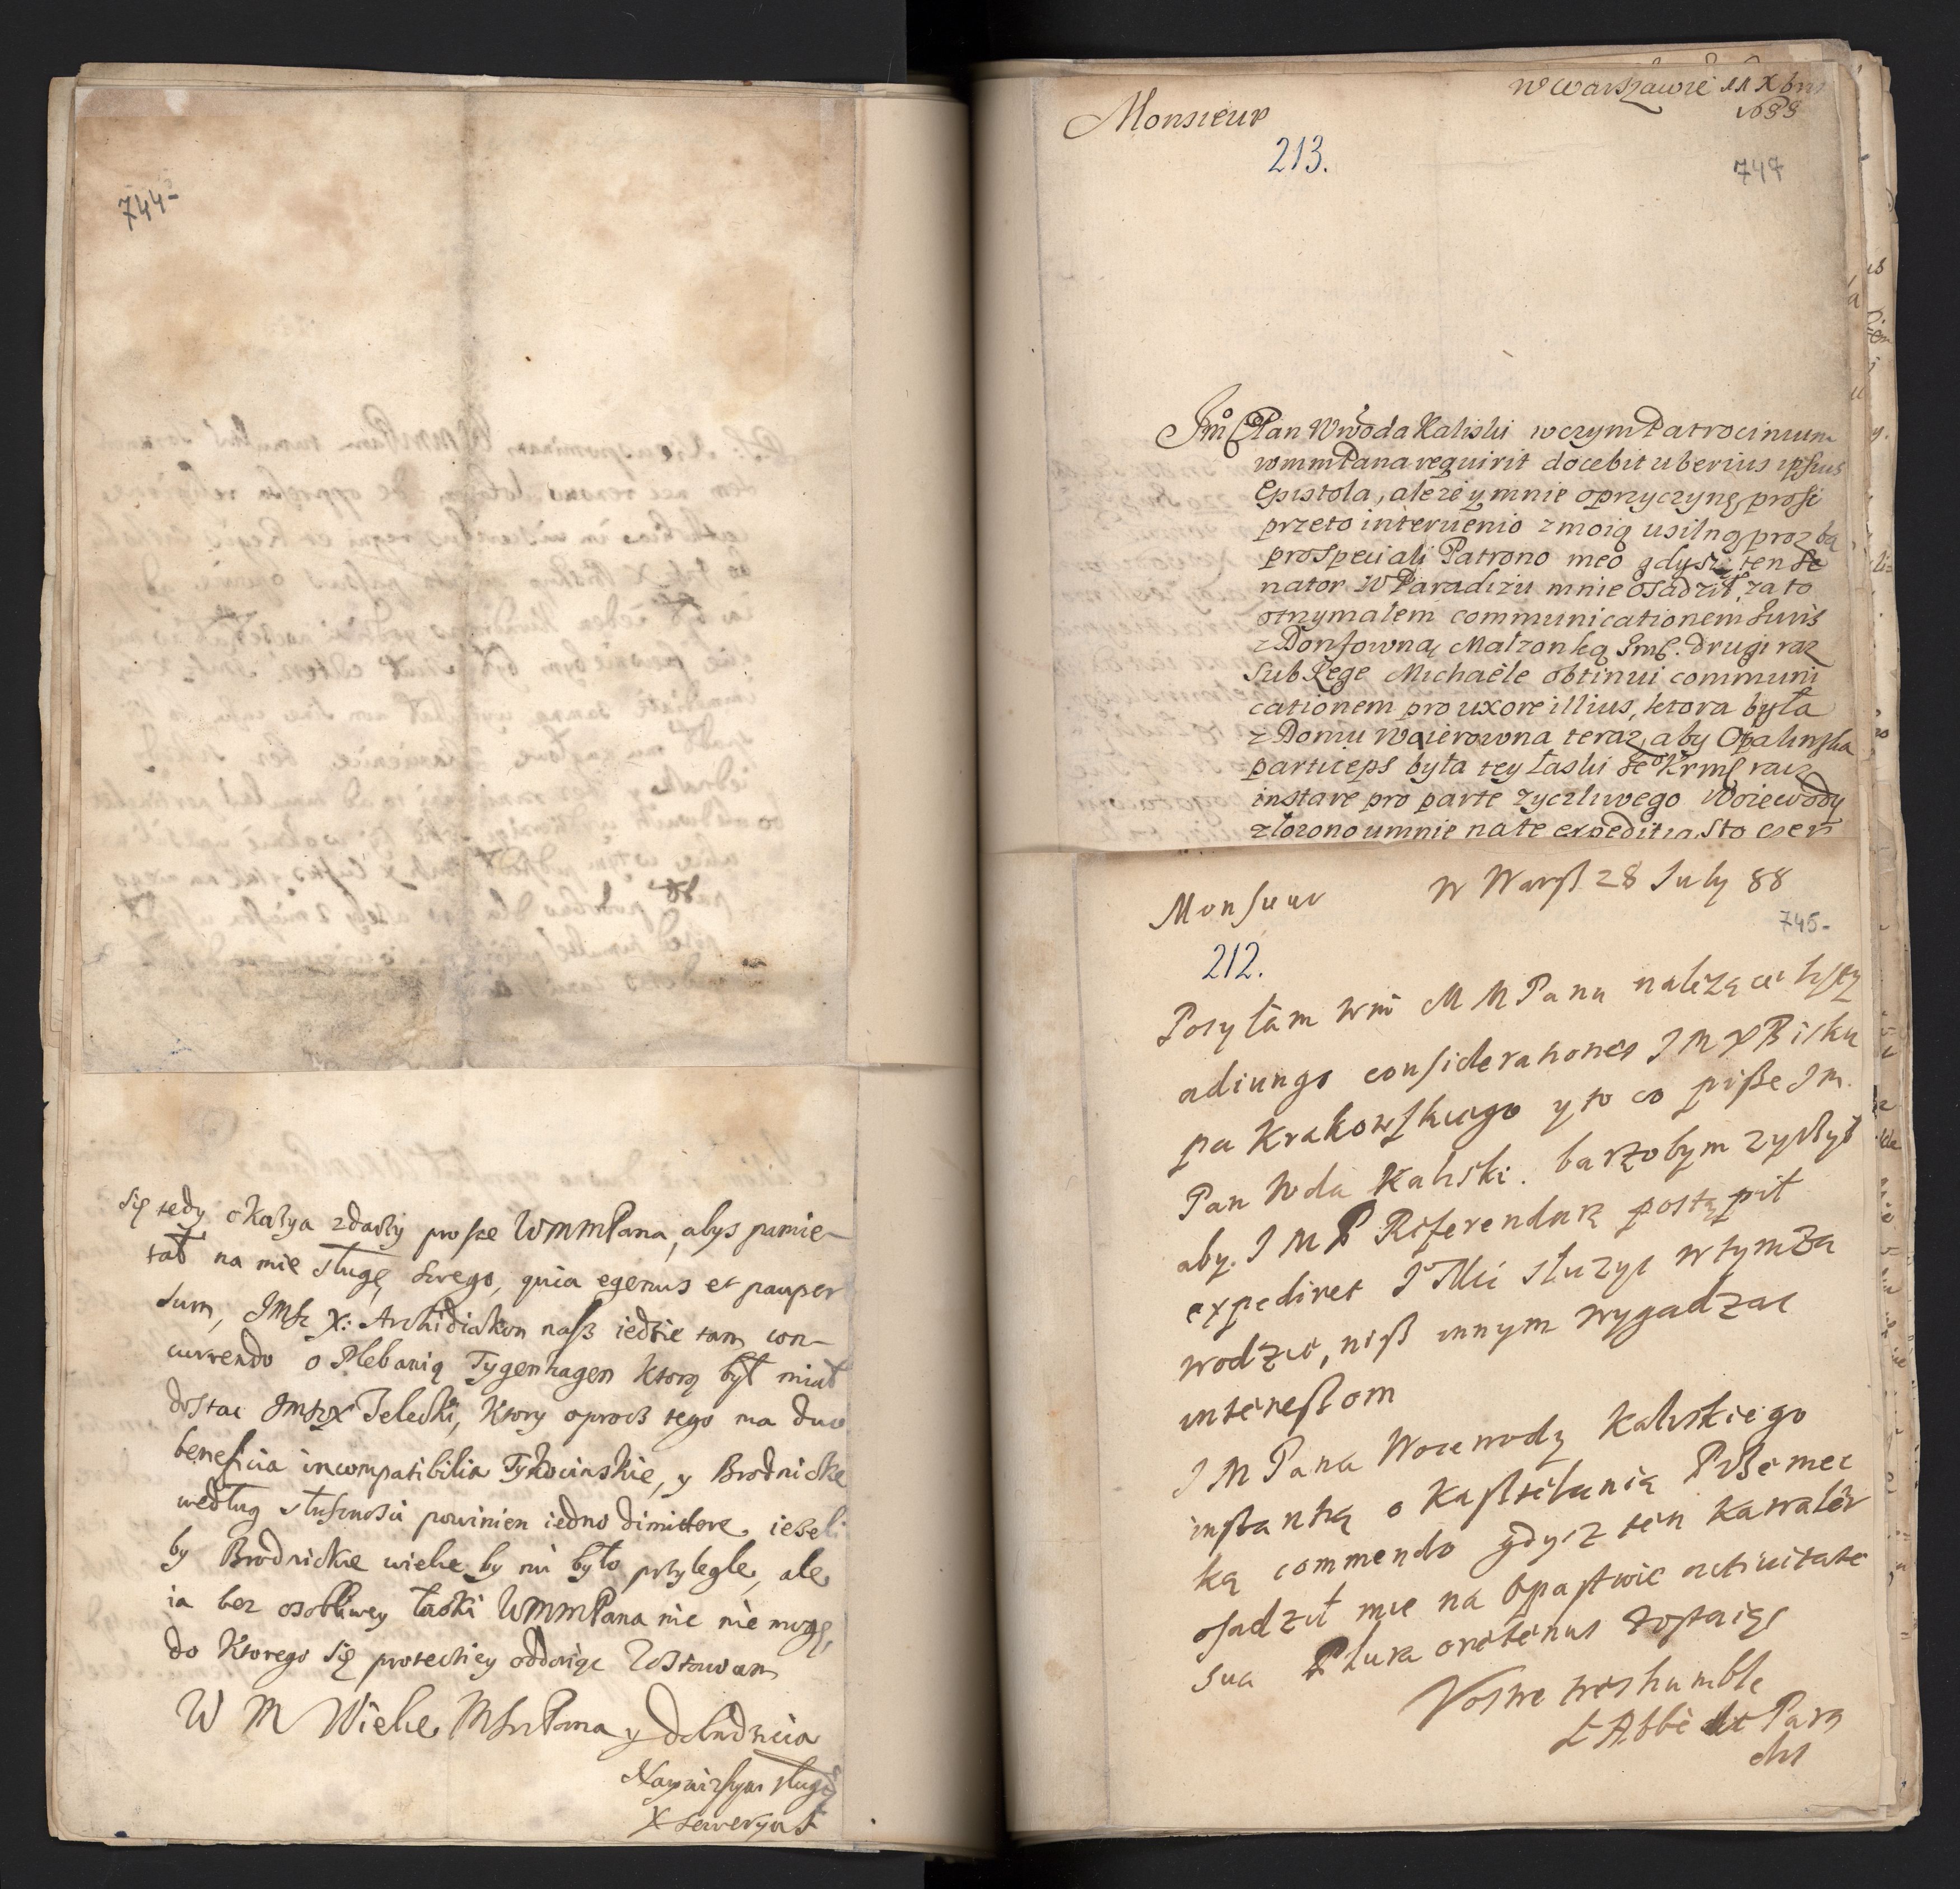 744-
Się tedy okazya zdarzy proszę WMMPana, abys pamie-
tał na mie sługę swego, quia egenus et pauper
sum, JMSc X: Archidiakon nasz iedzie tam con-
currendo o Plebanią Tygenhagen ktorą był miał
dostac Jmsc X Telecki, ktory oprocz tego ma duo
beneficia incompatibilia Tykocinskie, y Brodnickie
według słusznosci powinien iedno dimittere, iezeli
by Brodnickie wielce by mi było przyległe, ale
ia bez osobliwey łaski WMMPana nic nie mogę,
do ktorego się protectiey oddaiąc Zostawam
W M Wielce MScPana y Dobrodzieia
Nayniższym sługą
X Seweryn S
w Warszawie 11 Xbris
1688
Monsieur
213.
747
Jm͠ Pan Wwoda Kaliski w czym Patrocinium
wmmPana requirit docebit uberius ipsius
Epistola, ale ze y mnie o przyczynę prosi
przeto intervenio z moią usilną prozbą
pro speciali Patrono meo gdysz ten Se
nator W Paradizu mnie osadził, za to
otrzymałem communicationem Iuris
z Donfowną Małzonką Jmsc. drugi raz
Sub Rege Michaële obtinui communi
cationem pro uxore illius, ktora była
z Domu Waierowna teraz, aby Opalinska
particeps była tey łaski Je° Krmsc racz
instare pro parte zyczliwego Woiewody
złozono u mnie na te expeditią Sto czer
Monsieur W Warsz 28 July 88
745-
212.
Posyłam wm͠ M M Panu nalezące listy
adiungo considerationes J M X Bisku
pa Krakowskiego y to co pisze J m.
Pan Wda Kaliski. barzobym zyczył
aby. J M P Referendarz postąpił
expediret J° Mci słuzyc w tym Za
wodzie, nisz innym wygadzac
interessom
J M Pana Woiewody Kaliskiego
instantią o Kasztelanią Przemec
ką commendo gdysz ten Kawaler
osadził mie na Opastwie activitate
sua Plura oretenus zostaięc
Vostre tres humble
L Abbè de Para
dis